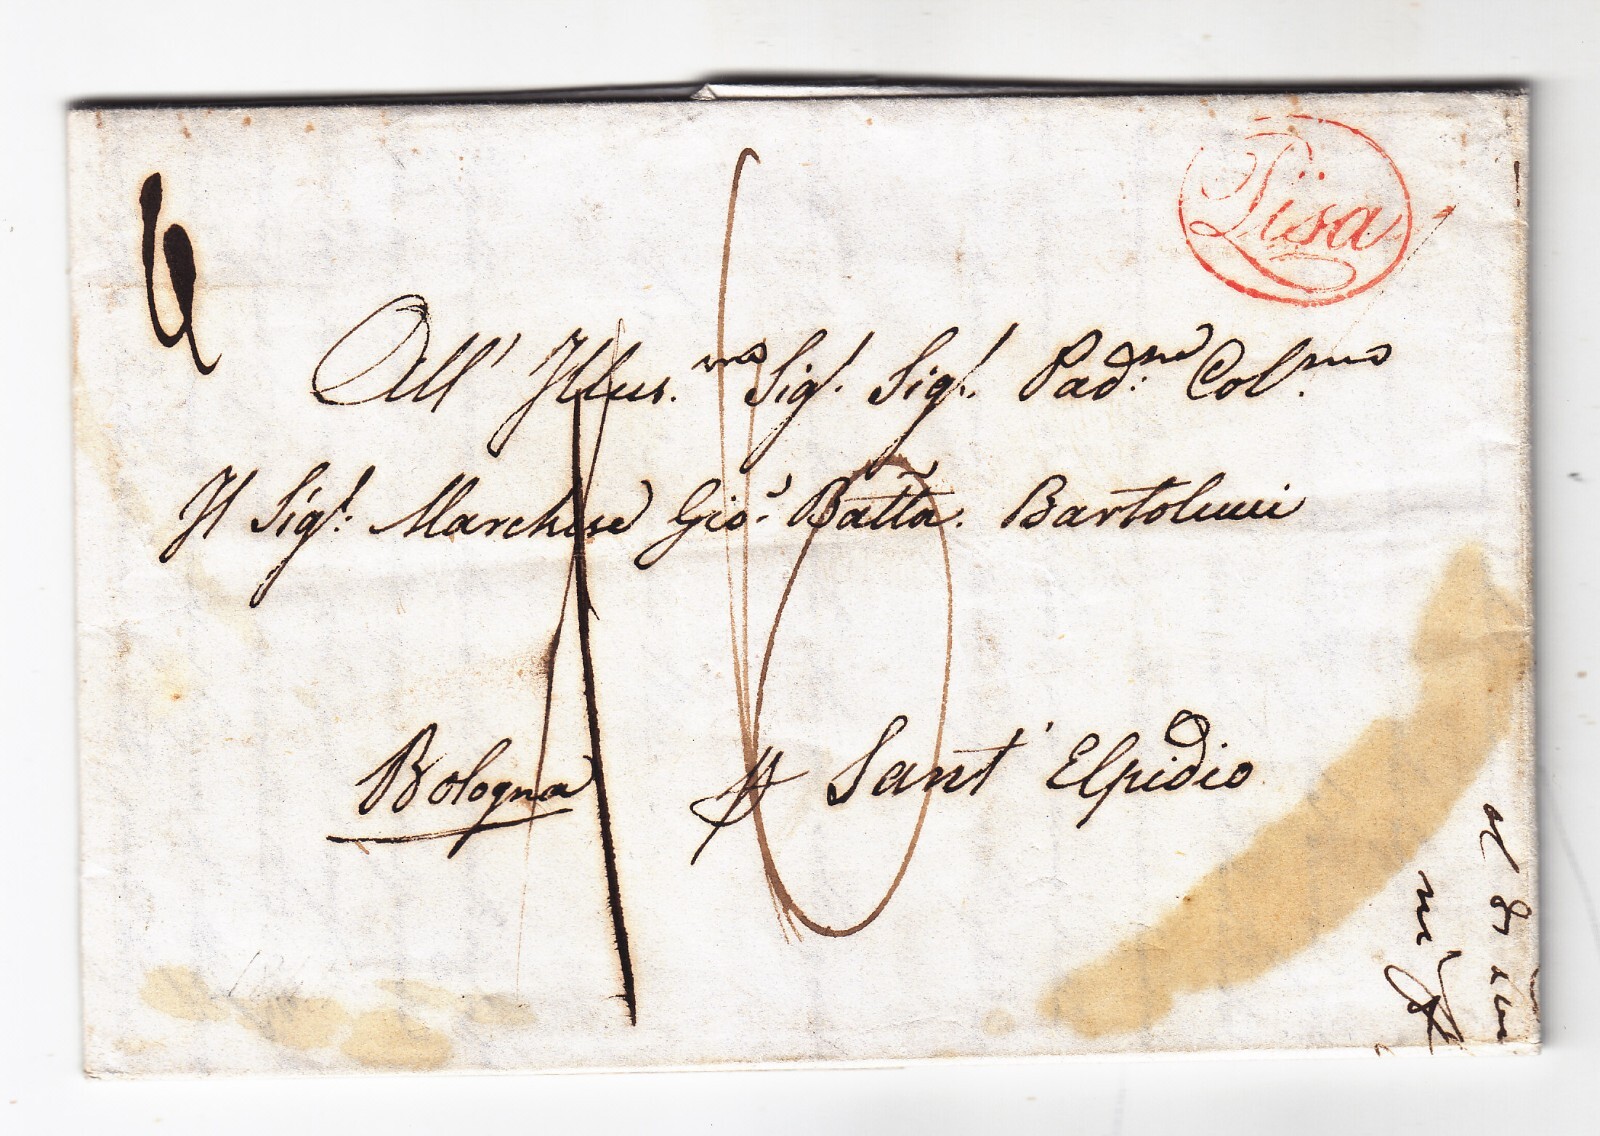 Pisa
6
All' Illus.mo Sig.r Sig.r Pad.ne Col.mo
Il Sig.r Marchese Gio. Batta. Bartolucci
Bologna
Sant' Elpidio